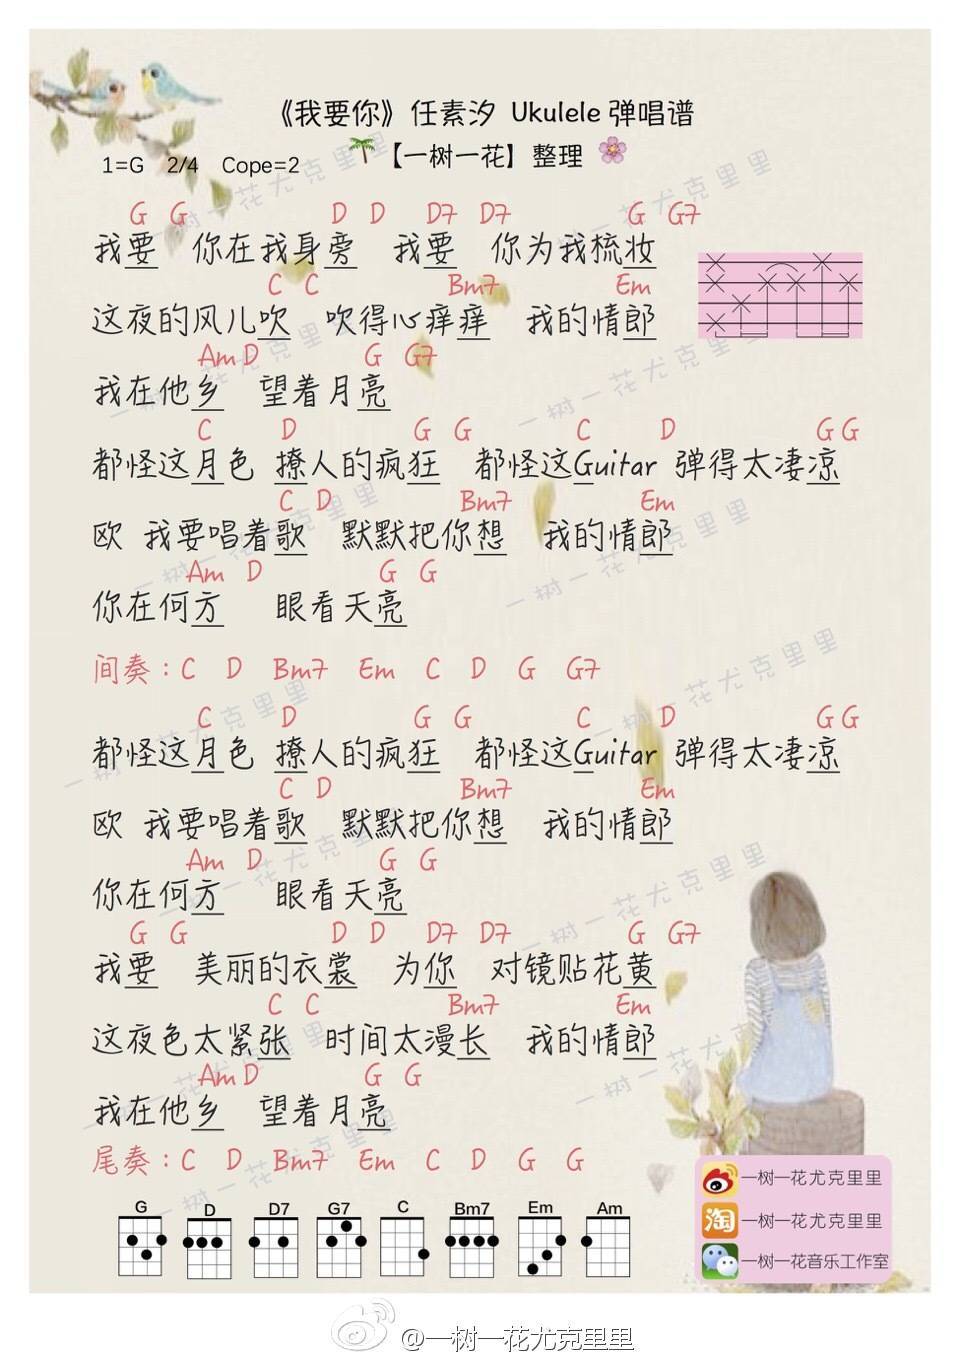 《我要你》任素汐 Ukulele 弹唱谱
【一树一花】整理
1=G 2/4 Cope=2
G G D D D7 D7 G G7
我要 你在我身旁 我要 你为我梳妆
C C Bm7 Em
这夜的风儿吹 吹得心痒痒 我的情郎
Am D G G7
我在他乡 望着月亮
C D G G C D G G
都怪这月色 撩人的疯狂 都怪这Guitar 弹得太凄凉
C D Bm7 Em
欧 我要唱着歌 默默把你想 我的情郎
Am D G G
你在何方 眼看天亮
间奏：C D Bm7 Em C D G G7
C D G G C D G G
都怪这月色 撩人的疯狂 都怪这Guitar 弹得太凄凉
C D Bm7 Em
欧 我要唱着歌 默默把你想 我的情郎
Am D G G
你在何方 眼看天亮
G G D D D7 D7 G G7
我要 美丽的衣裳 为你 对镜贴花黄
C C Bm7 Em
这夜色太紧张 时间太漫长 我的情郎
Am D G G
我在他乡 望着月亮
尾奏：C D Bm7 Em C D G G
G D D7 G7 C Bm7 Em Am
一树一花尤克里里
淘 一树一花尤克里里
一树一花音乐工作室
@一树一花尤克里里